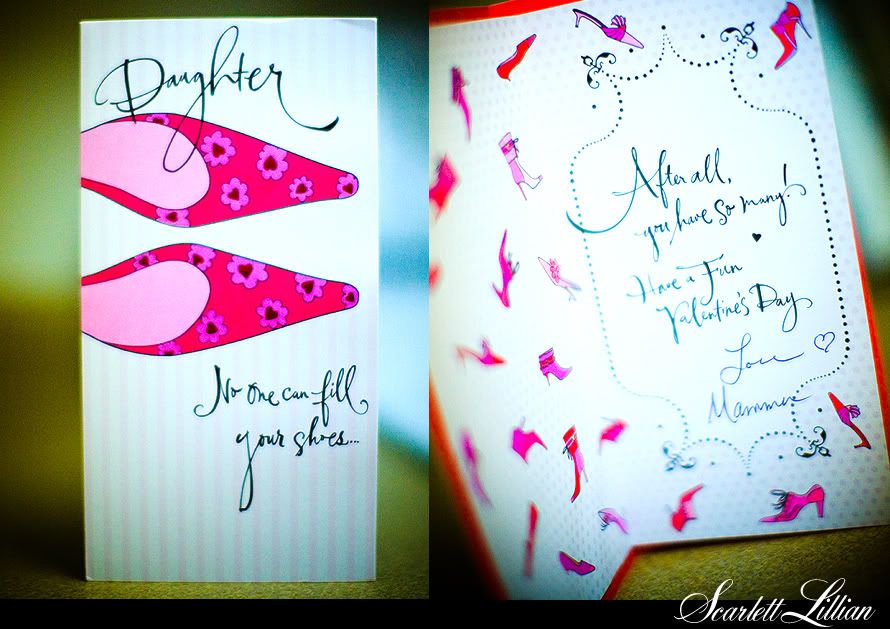 Daughter
No one can fill
your shoes...
After all,
you have so many!
Have a Fun
Valentine's Day
Love
Scarlett Lillian